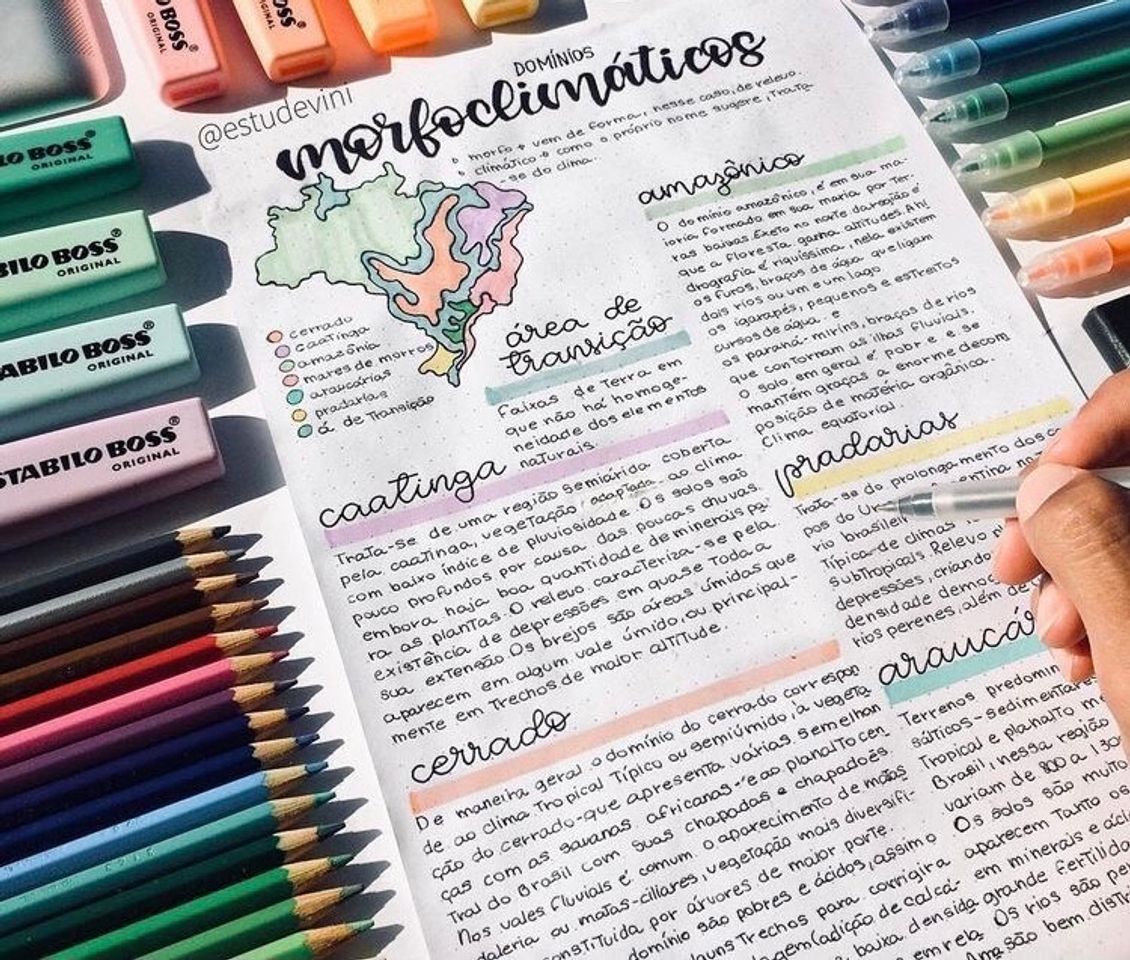 STABILO BOSS
ORIGINAL
LO BOSS®
ORIGINAL
BILO BOSS®
ORIGINAL
TABILO BOSS®
ORIGINAL
STABILO BOSS®
ORIGINAL
@estudevini
DOMÍNIOS
morfoclimáticos
morfo → vem de forma, nesse caso, de relevo.
climático → como o próprio nome sugere, trata
-se do clima.
cerrado
caatinga
amazônia
mares de morros
araucárias
pradarias
á. de transição
área de
transição
Faixas de terra em
que não há homoge-
neidade dos elementos
naturais.
amazônico
O domínio amazônico, é em sua ma-
ioria formada em sua maria por ter-
ras baixas. Exeto no norte da região é
que a floresta ganha altitudes. A hi
drografia é riquíssima, nela existem
os furos, braços de água que ligam
dois rios ou um e um lago
os igarapés, pequenos e estreitos
cursos de água. e
os paraná-mirins, braços de rios
que contornam as ilhas fluviais.
O solo em geral é pobre e se
mantém graças a enorme decom
posição de matéria orgânica.
Clima equatorial
caatinga
Trata-se de uma região semiárida coberta
pela caatinga, vegetação adaptada ao clima
com baixo índice de pluviosidade. Os solos são
pouco profundos por causa das poucas chuvas
embora haja boa quantidade de minerais pa-
ra as plantas. O relevo caracteriza-se pela
existência de depressões em quase toda a
sua extensão Os brejos são áreas úmidas que
aparecem em algum vale úmido, ou principal-
mente em trechos de maior altitude.
pradarias
Trata-se do prolongamento dos ca
pos do U
rio brasilei
Típica-de climas
subtropicais Relevo
depressões, criando
densidade democ
rios perenes, além de
cerrado
De maneira geral o domínio do cerrado correspon
de ao clima tropical típico ou semiúmido, à vegeta
ção do cerrado-que apresenta várias semelhan
ças com as savanas africanas-e ao planalto cen
tral do Brasil com suas chapadas e chapadões.
Nos vales fluviais é comum o aparecimento de matas
galeria ou matas-ciliares, vegetação mais diversifi-
constituída por árvores de maior porte.
domínio são pobres e ácidos, assim o
lguns trechos para corrigir a
gem (adição de calcá-
araucár
Terrenos predomin
sálticos-sedimentare
Tropical e planalto m
Brasil, nessa região
variam de 800 a 1.300
Os solos são muito
aparecem tanto os
em minerais e ácid
baixa densida grande fertilida
em relç Os rios são per
são bem distri